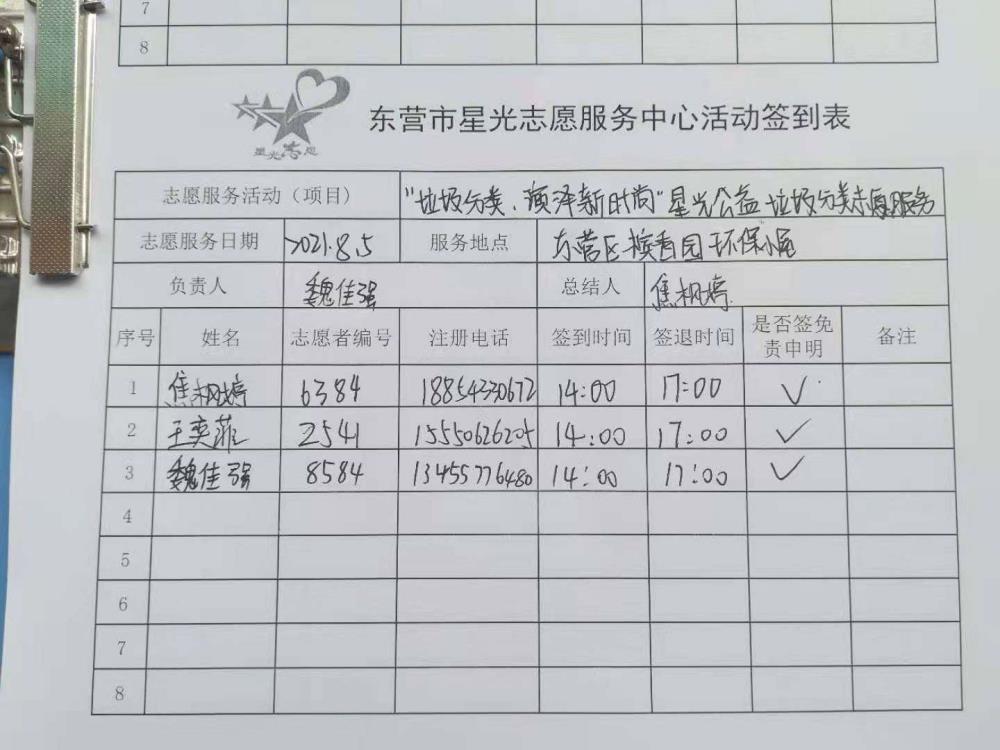 7
8
星光志愿
东营市星光志愿服务中心活动签到表
志愿服务活动（项目） "垃圾分类、演泽新时尚"星光公益垃圾分类志愿服务
志愿服务日期 2021.8.5 服务地点 东营区槟香园环保小屋
负责人 魏佳强 总结人 焦枫婷
序号 姓名 志愿者编号 注册电话 签到时间 签退时间 是否签免责申明 备注
1 焦枫婷 6384 18854330672 14:00 17:00 ✓
2 王奕菲 2541 15550626205 14:00 17:00 ✓
3 魏佳强 8584 13455776480 14:00 17:00 ✓
4
5
6
7
8